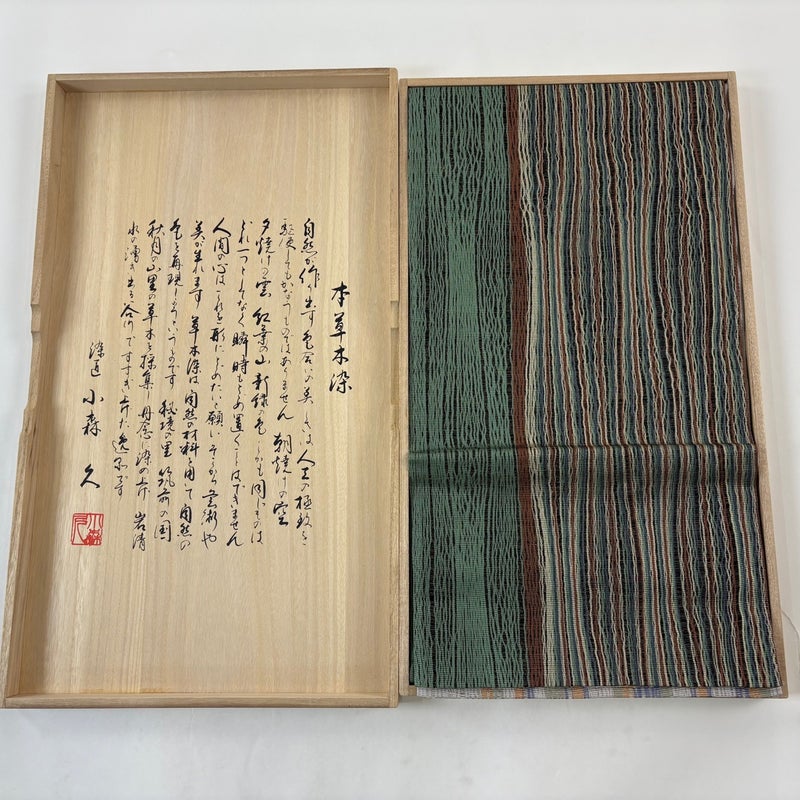 本草木染
自然が作り出す色合いの美しさは 人工の極致を
駆使してもかなうものではありません 朝焼けの空
夕焼けの雲 紅葉の山 新緑の色 しかも同じものは
どれ一つとしてなく 瞬時もとめ置くことはできません
人間の心はこれを形にとどめたいと願い そこから芸術や
美が生れます 草木染は自然の材料を用いて自然の
色を再現しようというものです 秘境の里 筑前の国
秋月の山里の草木を採集し丹念に染め上げ 岩清
水の湧き出る谷川ですすぎ上げた逸品です
染匠 小森 久